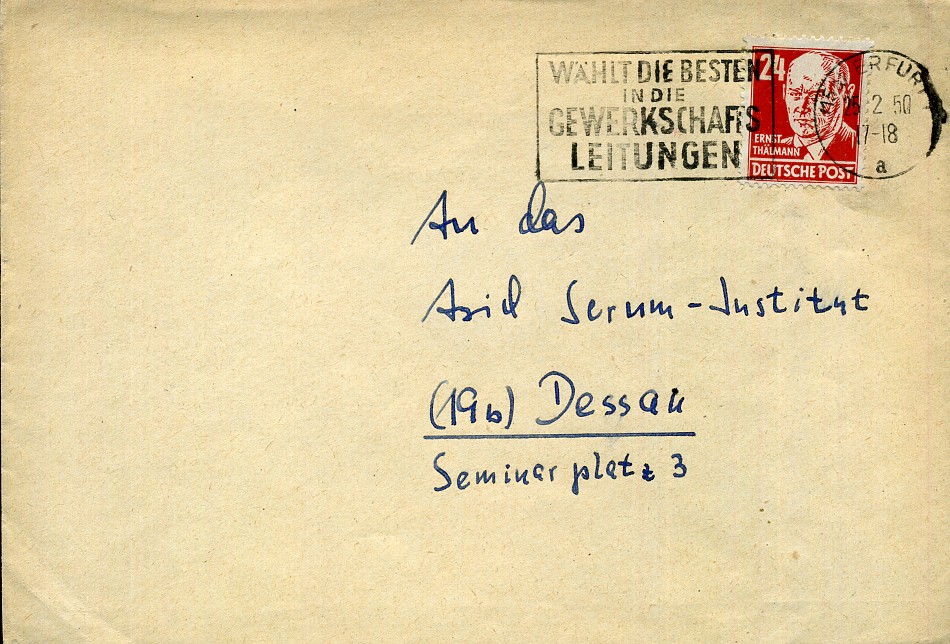 WÄHLT DIE BESTEN
IN DIE
GEWERKSCHAFTS
LEITUNGEN
24
ERNST
THÄLMANN
DEUTSCHE POST
ERFURT
25.2.50
17-18
a
An das
Asid Serum-Institut
(19b) Dessau
Seminarplatz 3